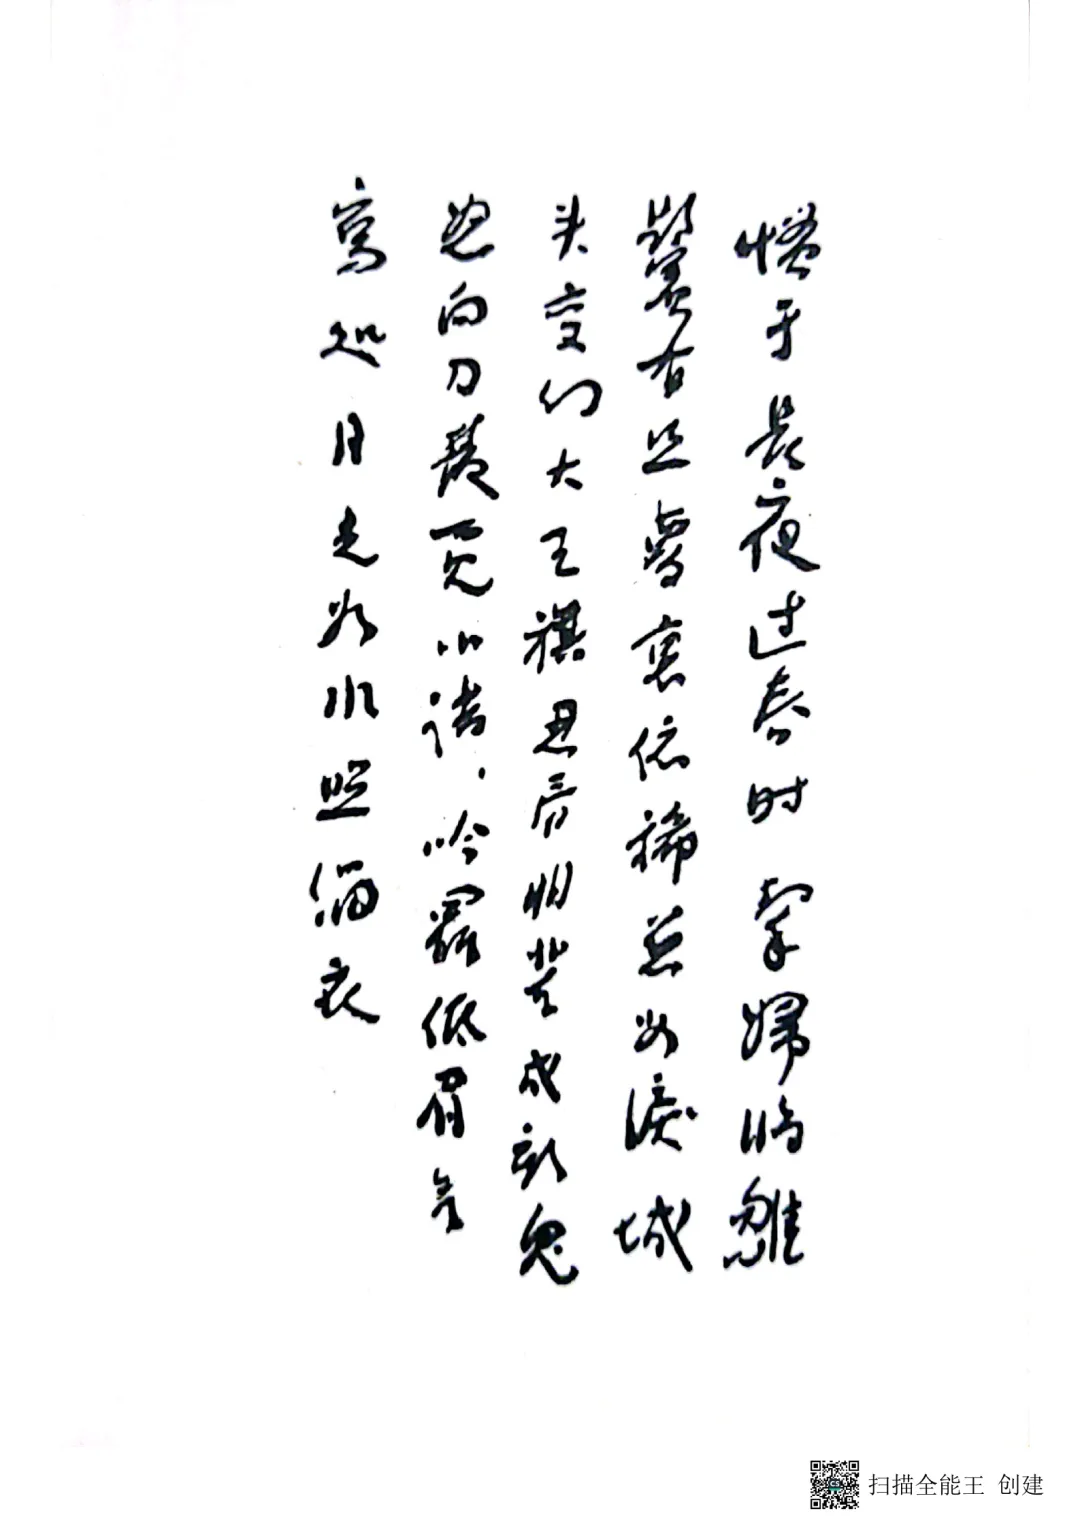 惯于長夜过春时挈婦将雛
鬢有丝夢裏依稀慈母淚城
头变幻大王旗忍看朋輩成新鬼
怒向刀叢覓小诗吟罷低眉无
寫处月光如水照缁衣
扫描全能王 创建